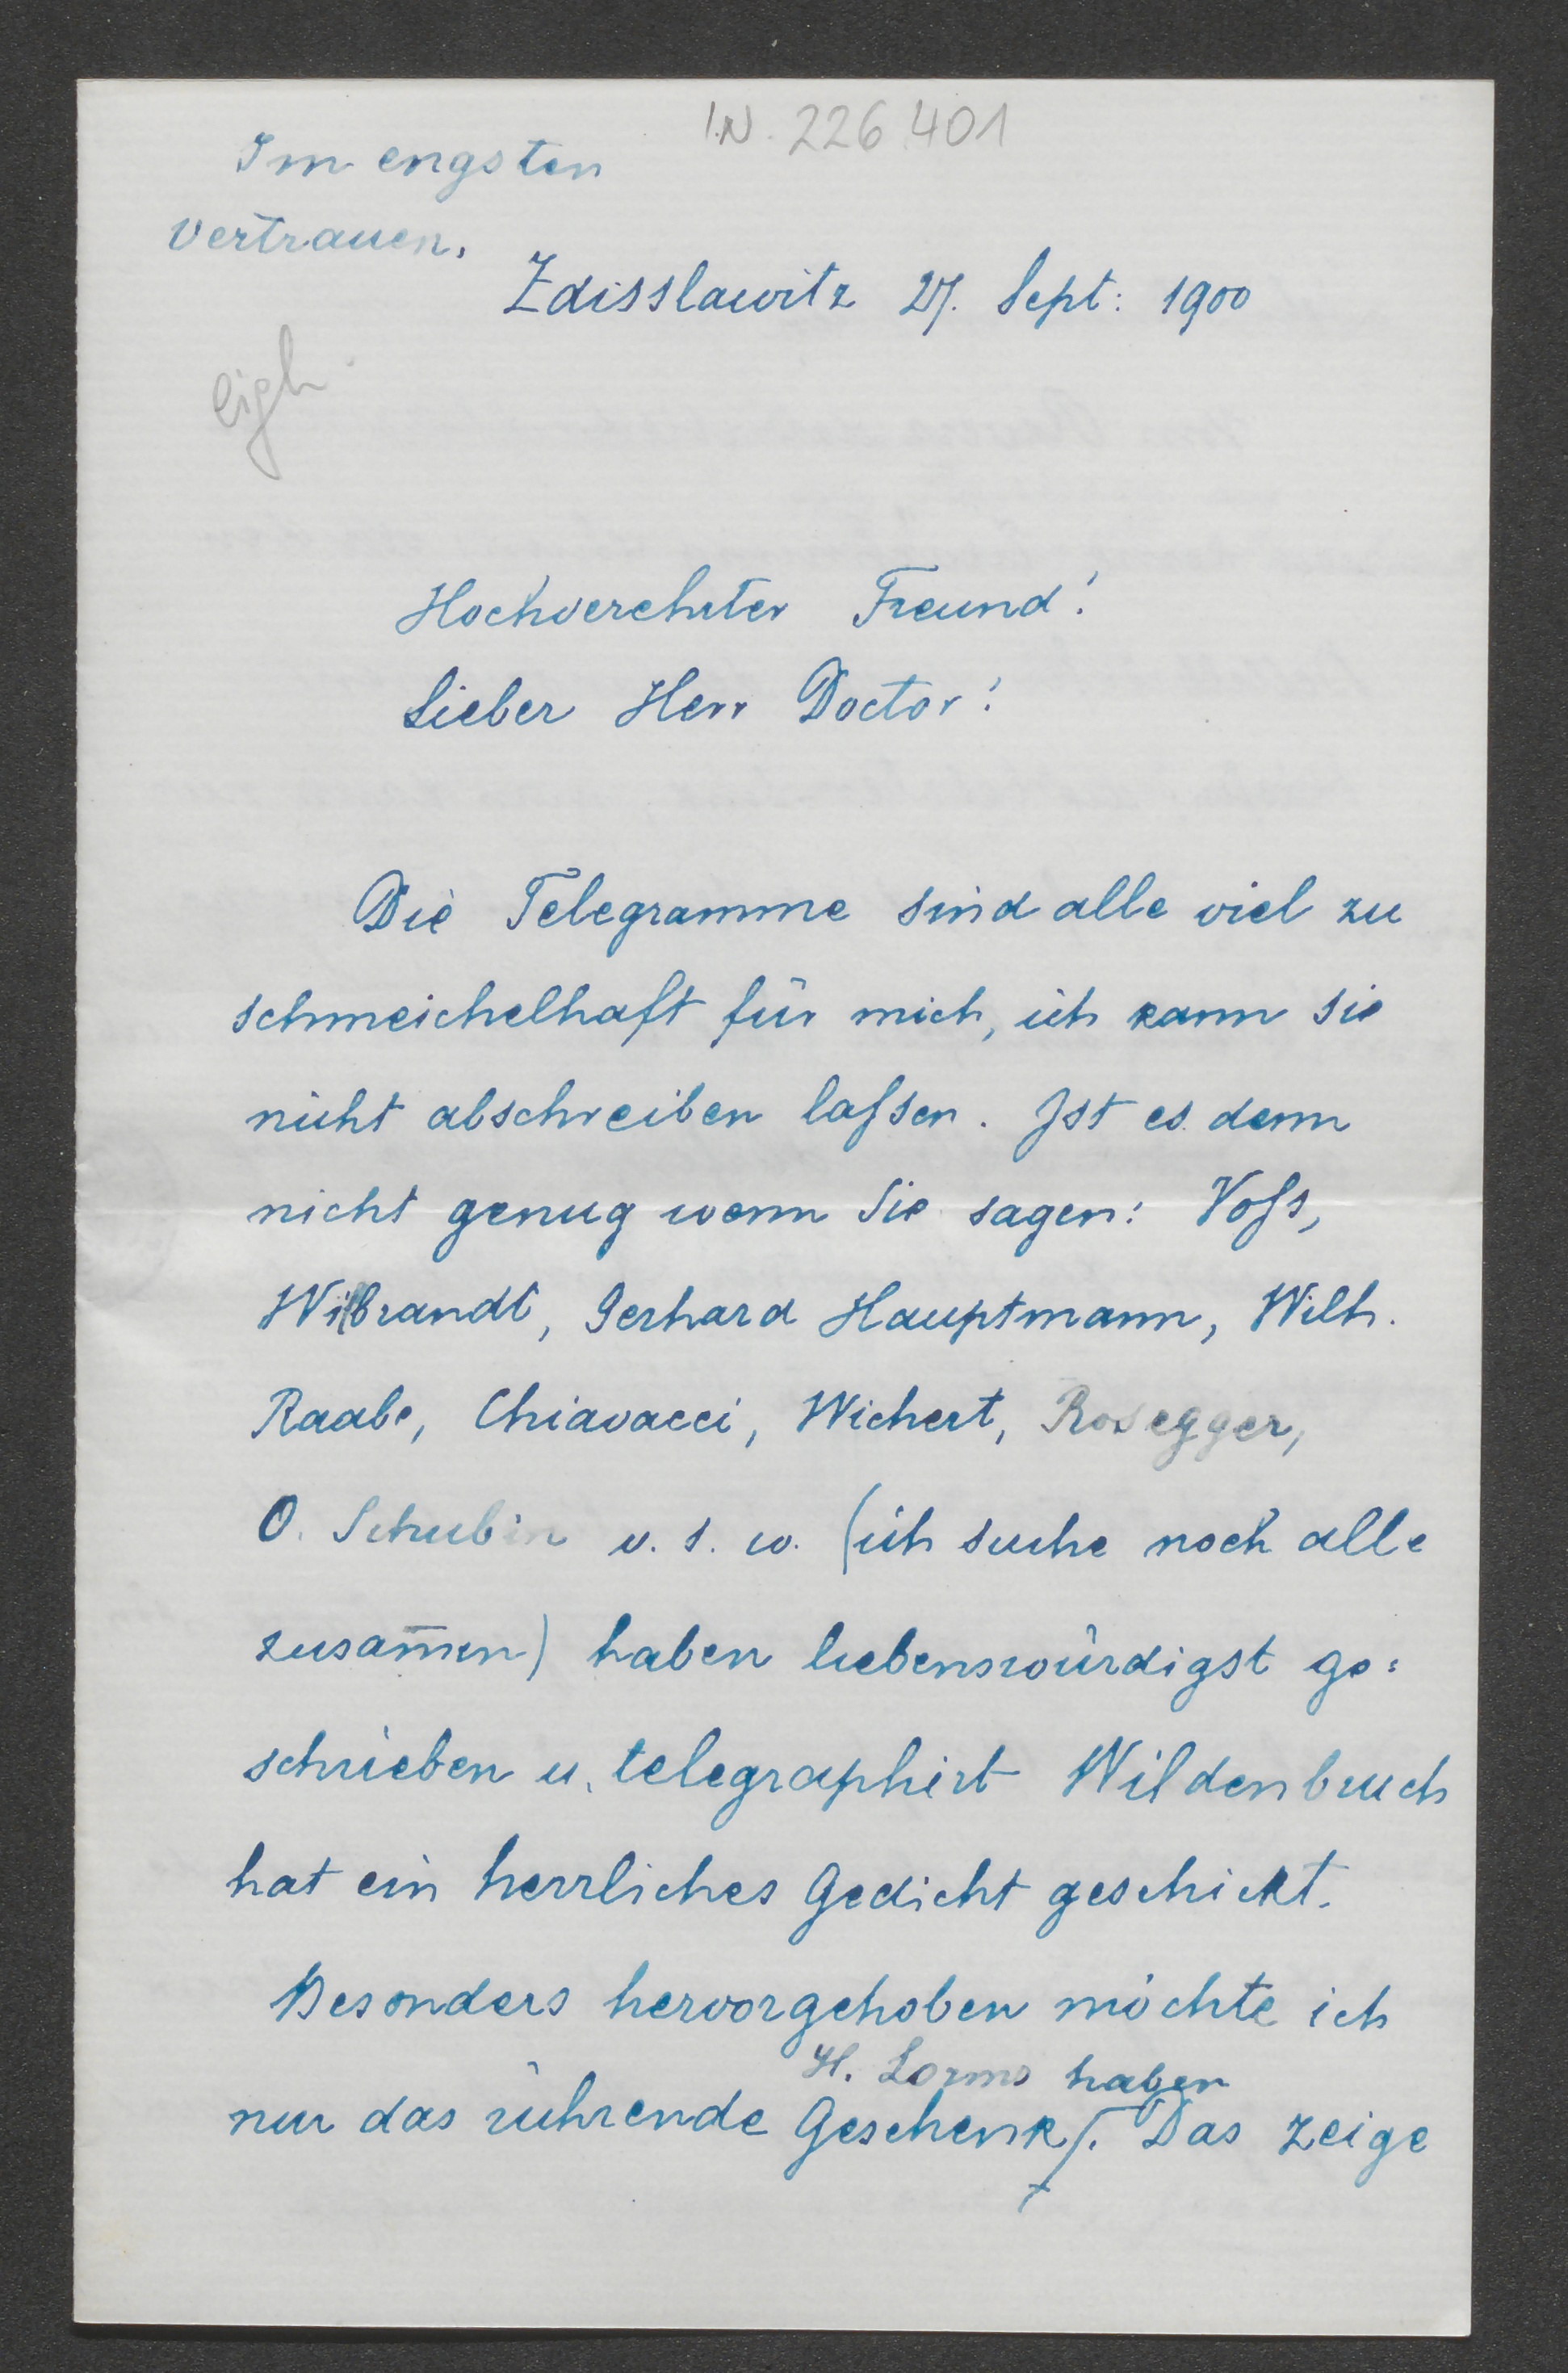 I.N. 226.401
Im engsten
Vertrauen.
Zdisslawitz 27. Sept: 1900
eigh.
Hochverehrter Freund!
Lieber Herr Doctor!
Die Telegramme sind alle viel zu
schmeichelhaft für mich, ich kann sie
nicht abschreiben laſsen. Ist es denn
nicht genug wenn Sie sagen: Voſs,
Wilbrandt, Gerhard Hauptmann, Wilh.
Raabe, Chiavacci, Wichert, Rosegger,
O. Schubin u. s. w. (ich suche noch alle
zusam̅en) haben liebenswürdigst ge=
schrieben u. telegraphirt Wildenbruch
hat ein herrliches Gedicht geschickt.
Besonders hervorgehoben möchte ich
H. Lorms haben
nur das rührende Geschenk/. Das zeige